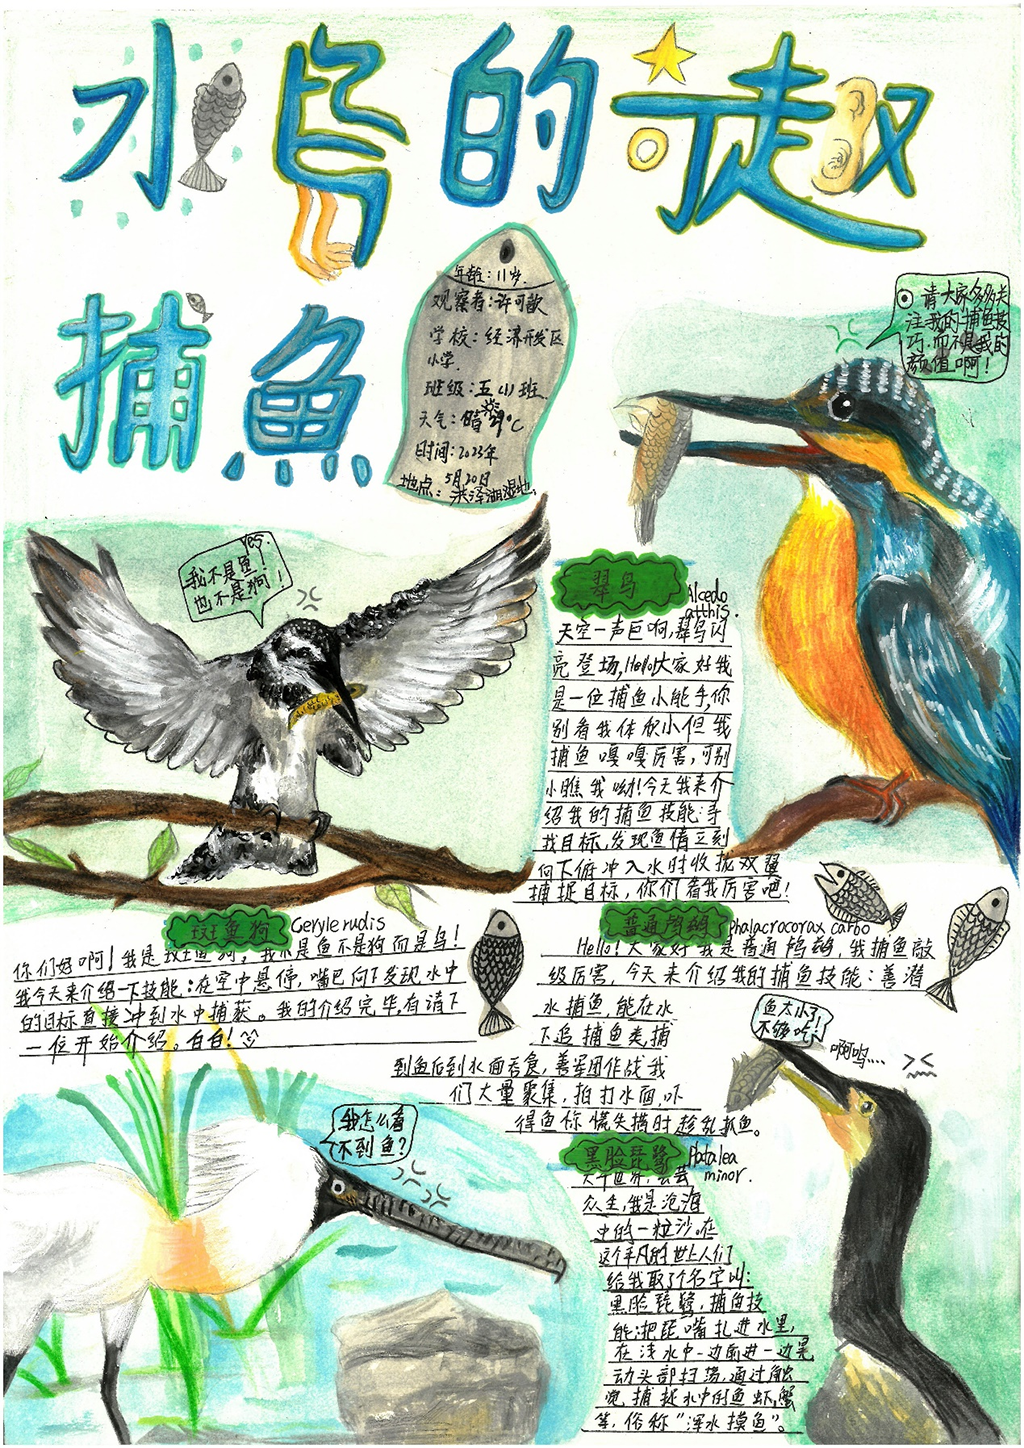 水鸟的奇趣
捕魚
年龄:11岁.
观察者:许可歆
学校:经济开发区
小学.
班级:五(1)班
天气:晴
℃
时间:2023年
5月20日
地点:洪泽湖湿地.
请大家多多关
注我的捕鱼技
巧.而不是我的
颜值啊!
Yes.
我不是鱼!
也不是狗!
翠鸟
Alcedo
atthis.
天空一声巨响,翠鸟闪
亮登场,Hello!大家好我
是一位捕鱼小能手,你
别看我体积小但我
捕鱼嘎嘎厉害,可别
小瞧我呦!今天我来介
绍我的捕鱼技能:寻
找目标,发现鱼情立刻
向下俯冲入水时收拢双翼
捕捉目标,你们看我厉害吧!
斑鱼狗
Ceryle rudis
你们好啊!我是斑鱼狗,我不是鱼不是狗而是鸟!
我今天来介绍一下技能:在空中悬停,嘴巴向下发现水中
的目标直接冲到水中捕获。我的介绍完毕,有请下
一位开始介绍。白白!
普通鸬鹚
Phalacrocorax carbo
Hello!大家好我是普通鸬鹚,我捕鱼敲
级厉害,今天来介绍我的捕鱼技能:善潜
水捕鱼,能在水
下追捕鱼类,捕
到鱼后到水面吞食,善军团作战我
们大量聚集,拍打水面,吓
得鱼你慌失措时趁乱抓鱼。
鱼太小了,
不够吃!
啊呜....
我怎么看
不到鱼?
黑脸琵鹭
Platalea
minor.
大千世界,芸芸
众生,我是沧海
中的一粒沙.在
这个平凡的世上人们
给我取了个名字叫:
黑脸琵鹭,捕鱼技
能:把琵嘴扎进水里,
在浅水中一边前进一边晃
动头部扫荡,通过触
觉捕捉水中的鱼虾,蟹
等,俗称“浑水摸鱼”。